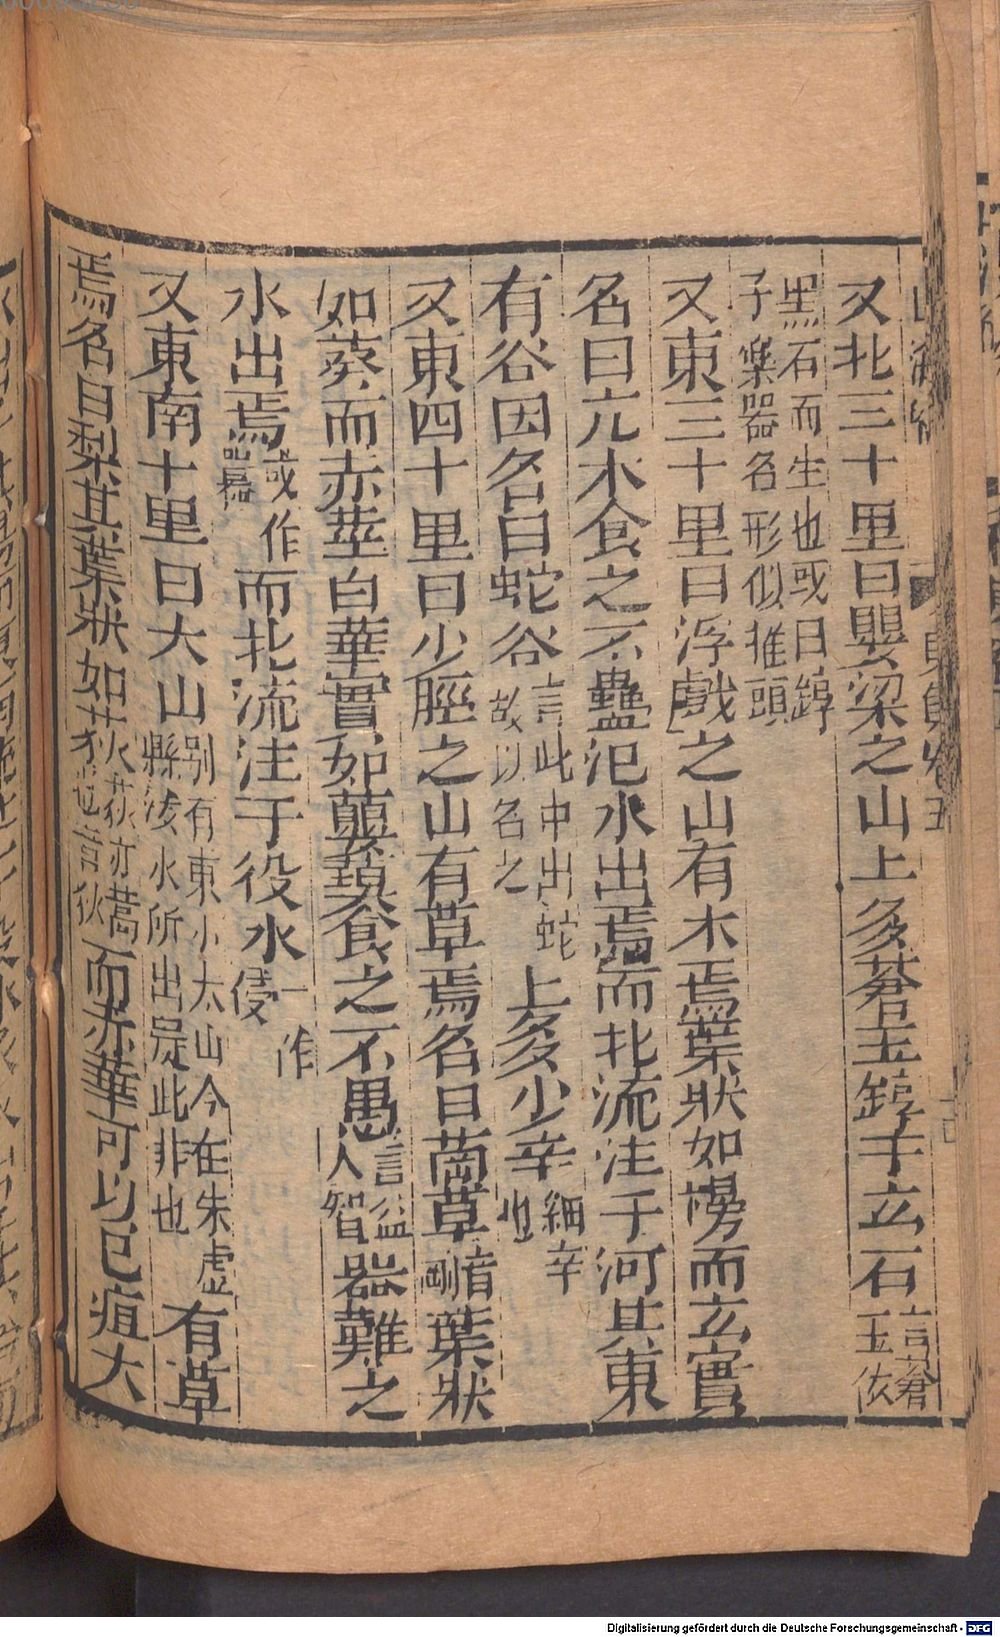 又北三十里曰嬰梁之山上多蒼玉錞于玄石言蒼玉依
黑石而生也或曰錞于樂器名形似椎頭
又東三十里曰浮戲之山有木焉葉狀如樗而玄實
名曰亢木食之不蠱汜水出焉而北流注于河其東
有谷因名曰蛇谷言此中出蛇故以名之上多少辛細辛也
又東四十里曰少脛之山有草焉名曰䓘草音剛葉狀
如葵而赤莖白華實如蘡薁食之不愚言益人智器難之
水出焉或作囂而北流注于役水一作侵
又東南十里曰大山别有東小太山今在朱虚縣汶水所出是此非也有草
焉名曰梨其葉狀如荻荻亦蒿也音狄而赤華可以已疽大
Digitalisierung gefördert durch die Deutsche Forschungsgemeinschaft - DFG